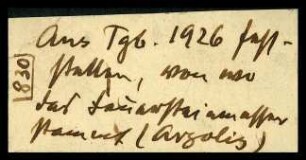 830
Aus Tgb. 1926 fest-
stellen, von wo
das Feuersteinmesser
stammt (Argolis)